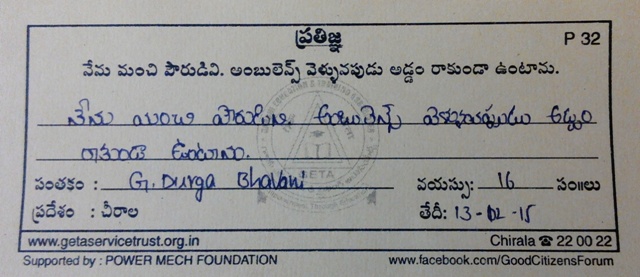 ప్రతిజ్ఞ P 32
నేను మంచి పౌరుడిని. అంబులెన్స్ వెళ్ళునపుడు అడ్డం రాకుండా ఉంటాను.
నేను మంచి పౌరుడిని. అంబులెన్స్ వెళ్ళునప్పుడు అడ్డం
రాకుండా ఉంటాను.
GETA
సంతకం : G. Durga Bhavani వయస్సు: 16 సం॥లు
ప్రదేశం : చీరాల తేదీ: 13-02-15
www.getaservicetrust.org.in Chirala ☎ 22 00 22
Supported by : POWER MECH FOUNDATION www.facebook.com/GoodCitizensForum